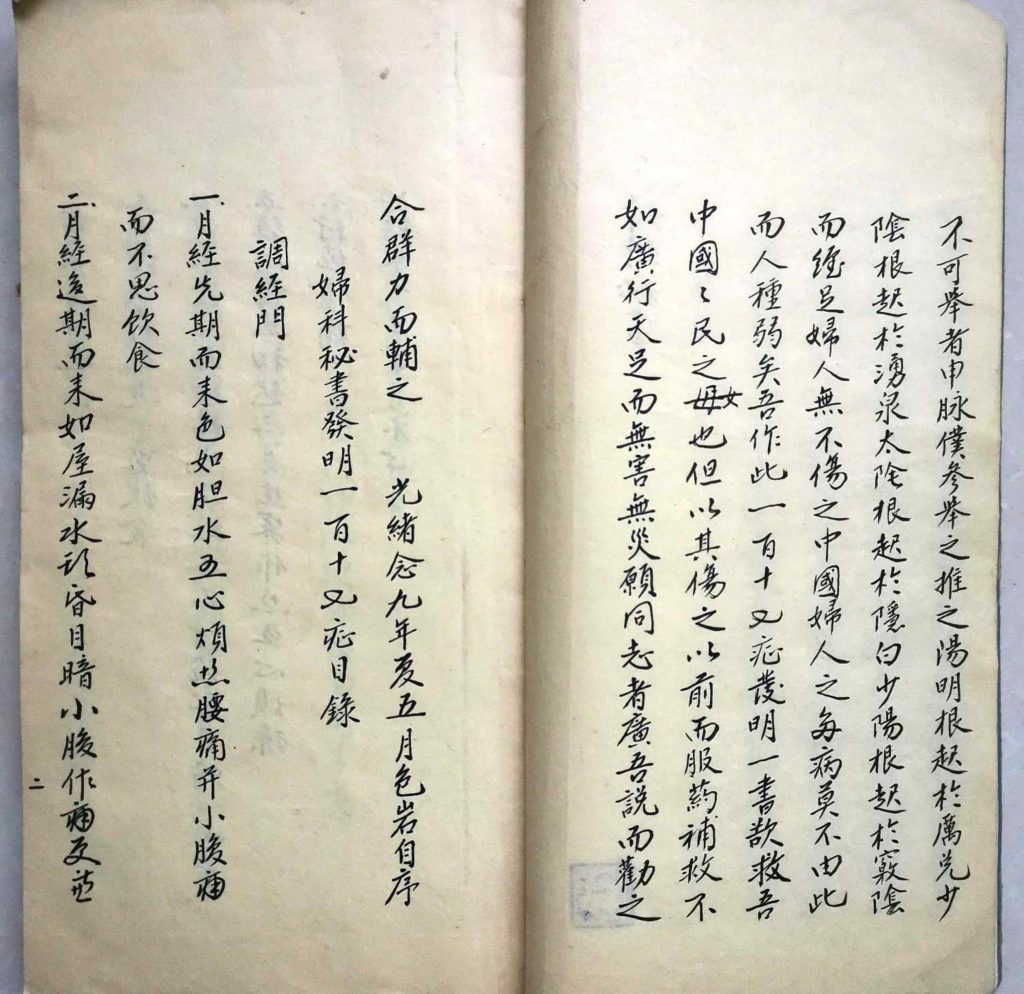 不可舉者申脉僕參舉之推之陽明根起於厲兌少
陰根起於湧泉太陰根起於隱白少陽根起於竅陰
而纏足婦人無不傷之中國婦人之每病莫不由此
而人種弱矣吾作此一百十又症發明一書欲救吾
中國〻民之女也但以其傷之以前而服葯補救不
如廣行天足而無害無災願同志者廣吾說而勸之
合群力而輔之 光緒念九年夏五月色岩自序
婦科秘書發明一百十又症目錄
調經門
一月經先期而来色如胆水五心煩热腰痛并小腹痛
而不思飲食
二月經過期而来如屋漏水頭昏目暗小腹作痛及
二